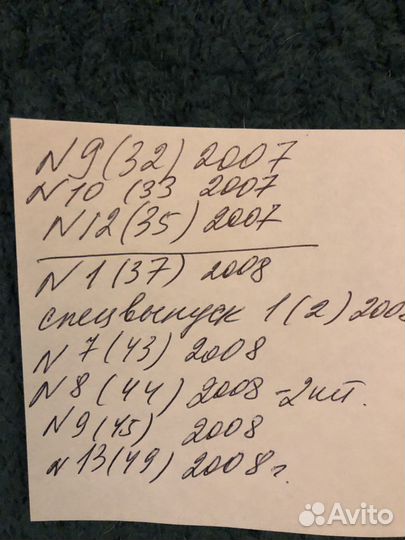 N9(32) 2007
N10 (33 2007
N12(35) 2007
N1(37) 2008
спецвыпуск 1(2) 2008
N7(43) 2008
N8(44) 2008 -2шт.
N9(45) 2008
N13(49) 2008г.
Avito